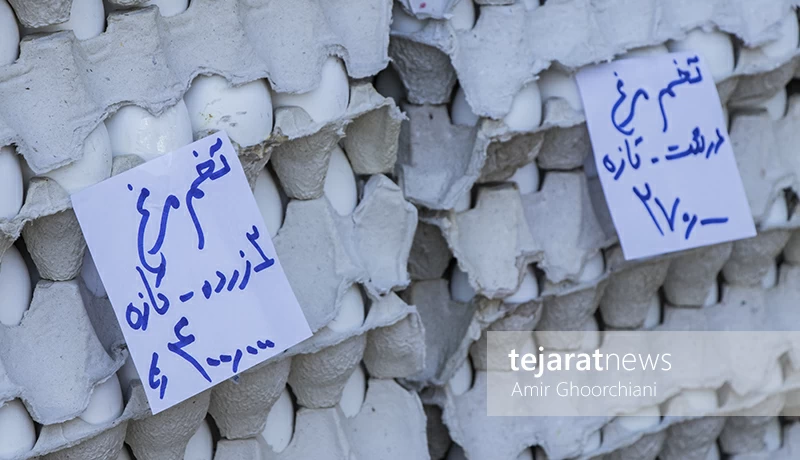 تخم مرغ
۲ زرده - تازه
۴۰۰،۰۰۰ر
تخم مرغ
درشت - تازه
۲۷۰،۰۰۰
tejaratnews
Amir Ghoorchiani